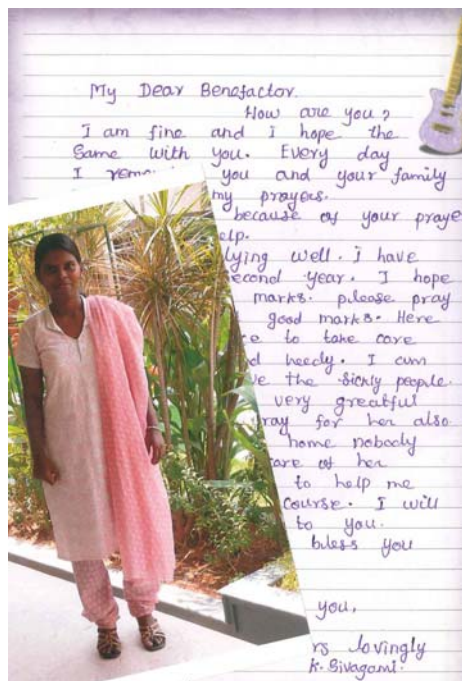 My Dear Benefactor.
How are you?
I am fine and I hope the
Same with you. Every day
I you and your family
my prayers.
because of your
lying well. I have
second year. I hope
marks. please pray
good marks. Here
to take care
needy. I
the sickly people.
very greatful
pray for her also.
home nobody
care of her
to help me
course. I will
to you.
bless you
you,
lovingly
k. Sivagami.